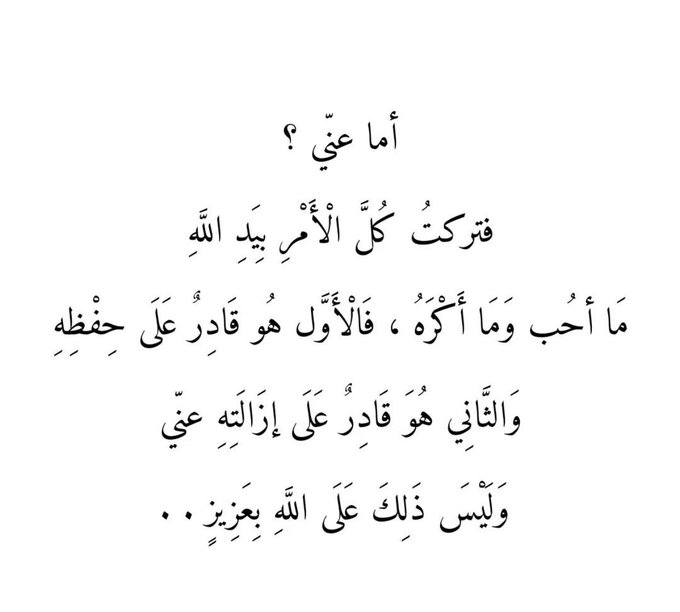 أما عنّي ؟
فتركتُ كُلَّ الْأَمْرِ بِيَدِ اللَّهِ
مَا أحُب وَمَا أَكْرَهُ ، فَالْأَوَّل هُو قَادِرٌ عَلَى حِفْظِهِ
وَالثَّانِي هُوَ قَادِرٌ عَلَى إزَالَتِهِ عنّي
وَلَيْسَ ذَلِكَ عَلَى اللَّهِ بِعَزِيزٍ . .